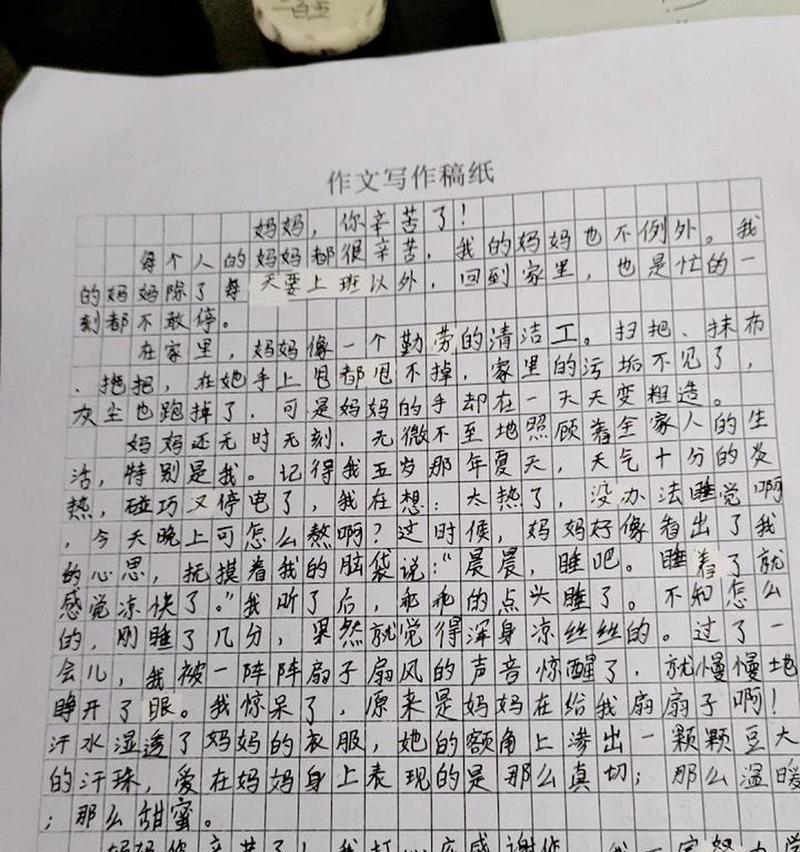 一百至
作文写作稿纸
妈妈，你辛苦了！
每个人的妈妈都很辛苦，我的妈妈也不例外。我
的妈妈除了每天要上班以外，回到家里，也是忙的一
刻都不敢停。
在家里，妈妈像一个勤劳的清洁工。扫把、抹布
、拖把，在她手上甩都甩不掉，家里的污垢不见了，
灰尘也跑掉了，可是妈妈的手却在一天天变粗造。
妈妈还无时无刻，无微不至地照顾着全家人的生
活，特别是我。记得我五岁那年夏天，天气十分的炎
热，碰巧又停电了，我在想：太热了，没办法睡觉啊
，今天晚上可怎么熬啊？这时候，妈妈好像看出了我
的心思，抚摸着我的脑袋说：“晨晨，睡吧。睡着了就
感觉凉快了。”我听了后，乖乖的点头睡了。不知怎么
的，刚睡了几分，果然就觉得浑身凉丝丝的。过了一
会儿，我被一阵阵扇子扇风的声音惊醒了，就慢慢地
睁开了眼。我惊呆了，原来是妈妈在给我扇扇子啊！
汗水湿透了妈妈的衣服，她的额角上渗出一颗颗豆大
的汗珠，爱在妈妈身上表现的是那么真切；那么温暖
；那么甜蜜。
妈妈你辛苦了！我打心底感谢你，我一定努力学